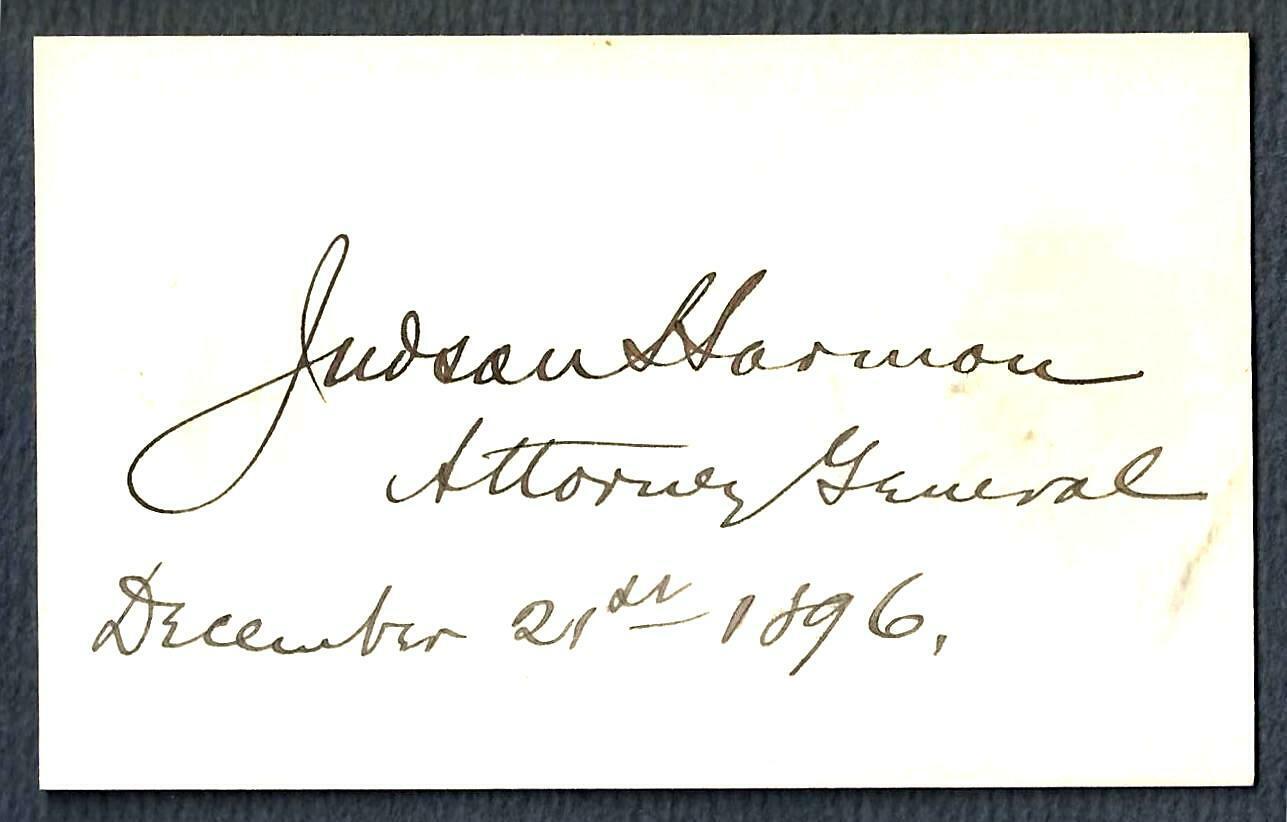 Judson Harmon
Attorney General
December 21st 1896.